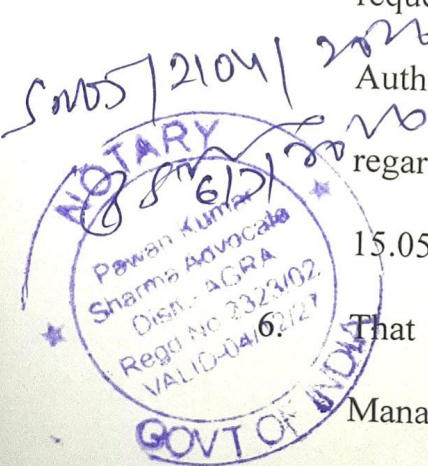 reque
Auth
regar
15.05
6. That
Mana
NOTARY
Pawan Kumar
Sharma Advocate
Distt.- AGRA
Regd No 2323/02
VALID-04/02/27
GOVT OF INDIA